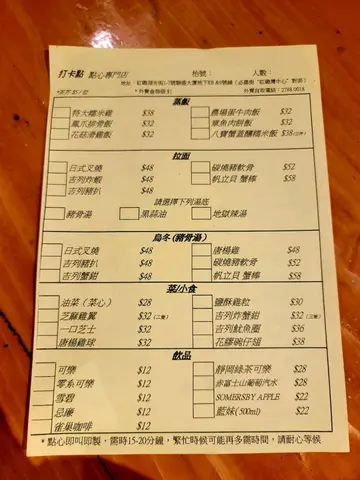 打卡點 點心專門店 枱號： 人數：
地址：紅磡湖光街1-7號聯盛大廈地下
*外賣盒每個$1 外賣自取電話：2788 0018
蒸飯
特大糯米雞 $38 農場蛋牛肉飯 $32
鳳爪排骨飯 $32 章魚肉餅飯 $32
花菇滑雞飯 $32 八寶蟹蓋釀糯米飯 $38
拉面
日式叉燒 $48 碳燒豬軟骨 $52
吉列炸蝦 $48 帆立貝 蟹棒 $58
吉列豬扒 $48
請選擇下列湯底
豬骨湯 黑蒜油 地獄辣湯
烏冬(豬骨湯)
日式叉燒 $48 唐楊雞 $48
吉列豬扒 $48 碳燒豬軟骨 $52
吉列蟹鉗 $48 帆立貝 蟹棒 $58
菜/小食
油菜（菜心） $28 鹽酥雞粒 $30
芝麻雞翼 $32（二隻） 吉列炸蟹鉗 $32（二隻）
一口芝士 $32 吉列魷魚圈 $36
唐楊雞球 $32 花膠碗仔翅 $38
飲品
可樂 $12 靜岡綠茶可樂 $28
零系可樂 $12 赤富士山葡萄汽水 $28
雪碧 $12 SOMERSBY APPLE $22
忌廉 $12 藍妹(500ml) $22
雀巢咖啡 $12
* 點心即叫即製，需時15-20分鐘，繁忙時候可能再多需時間，請耐心等候